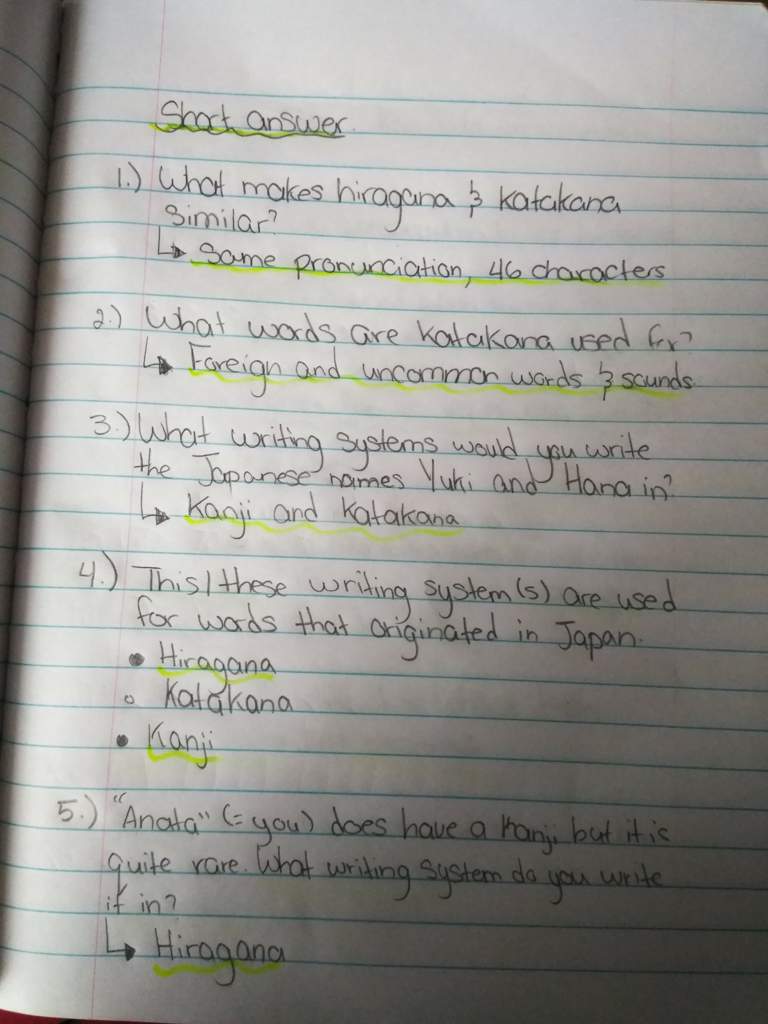 Short answer.
1.) What makes hiragana & katakana
similar?
↳ Same pronunciation, 46 characters
2.) What words are katakana used for?
↳ Foreign and uncommon words & sounds.
3.) What writing systems would you write
the Japanese names Yuki and Hana in?
↳ Kanji and katakana
4.) This/these writing system(s) are used
for words that originated in Japan.
• Hiragana
○ Katakana
• Kanji
5.) "Anata" (= you) does have a kanji but it is
quite rare. What writing system do you write
it in?
↳ Hiragana